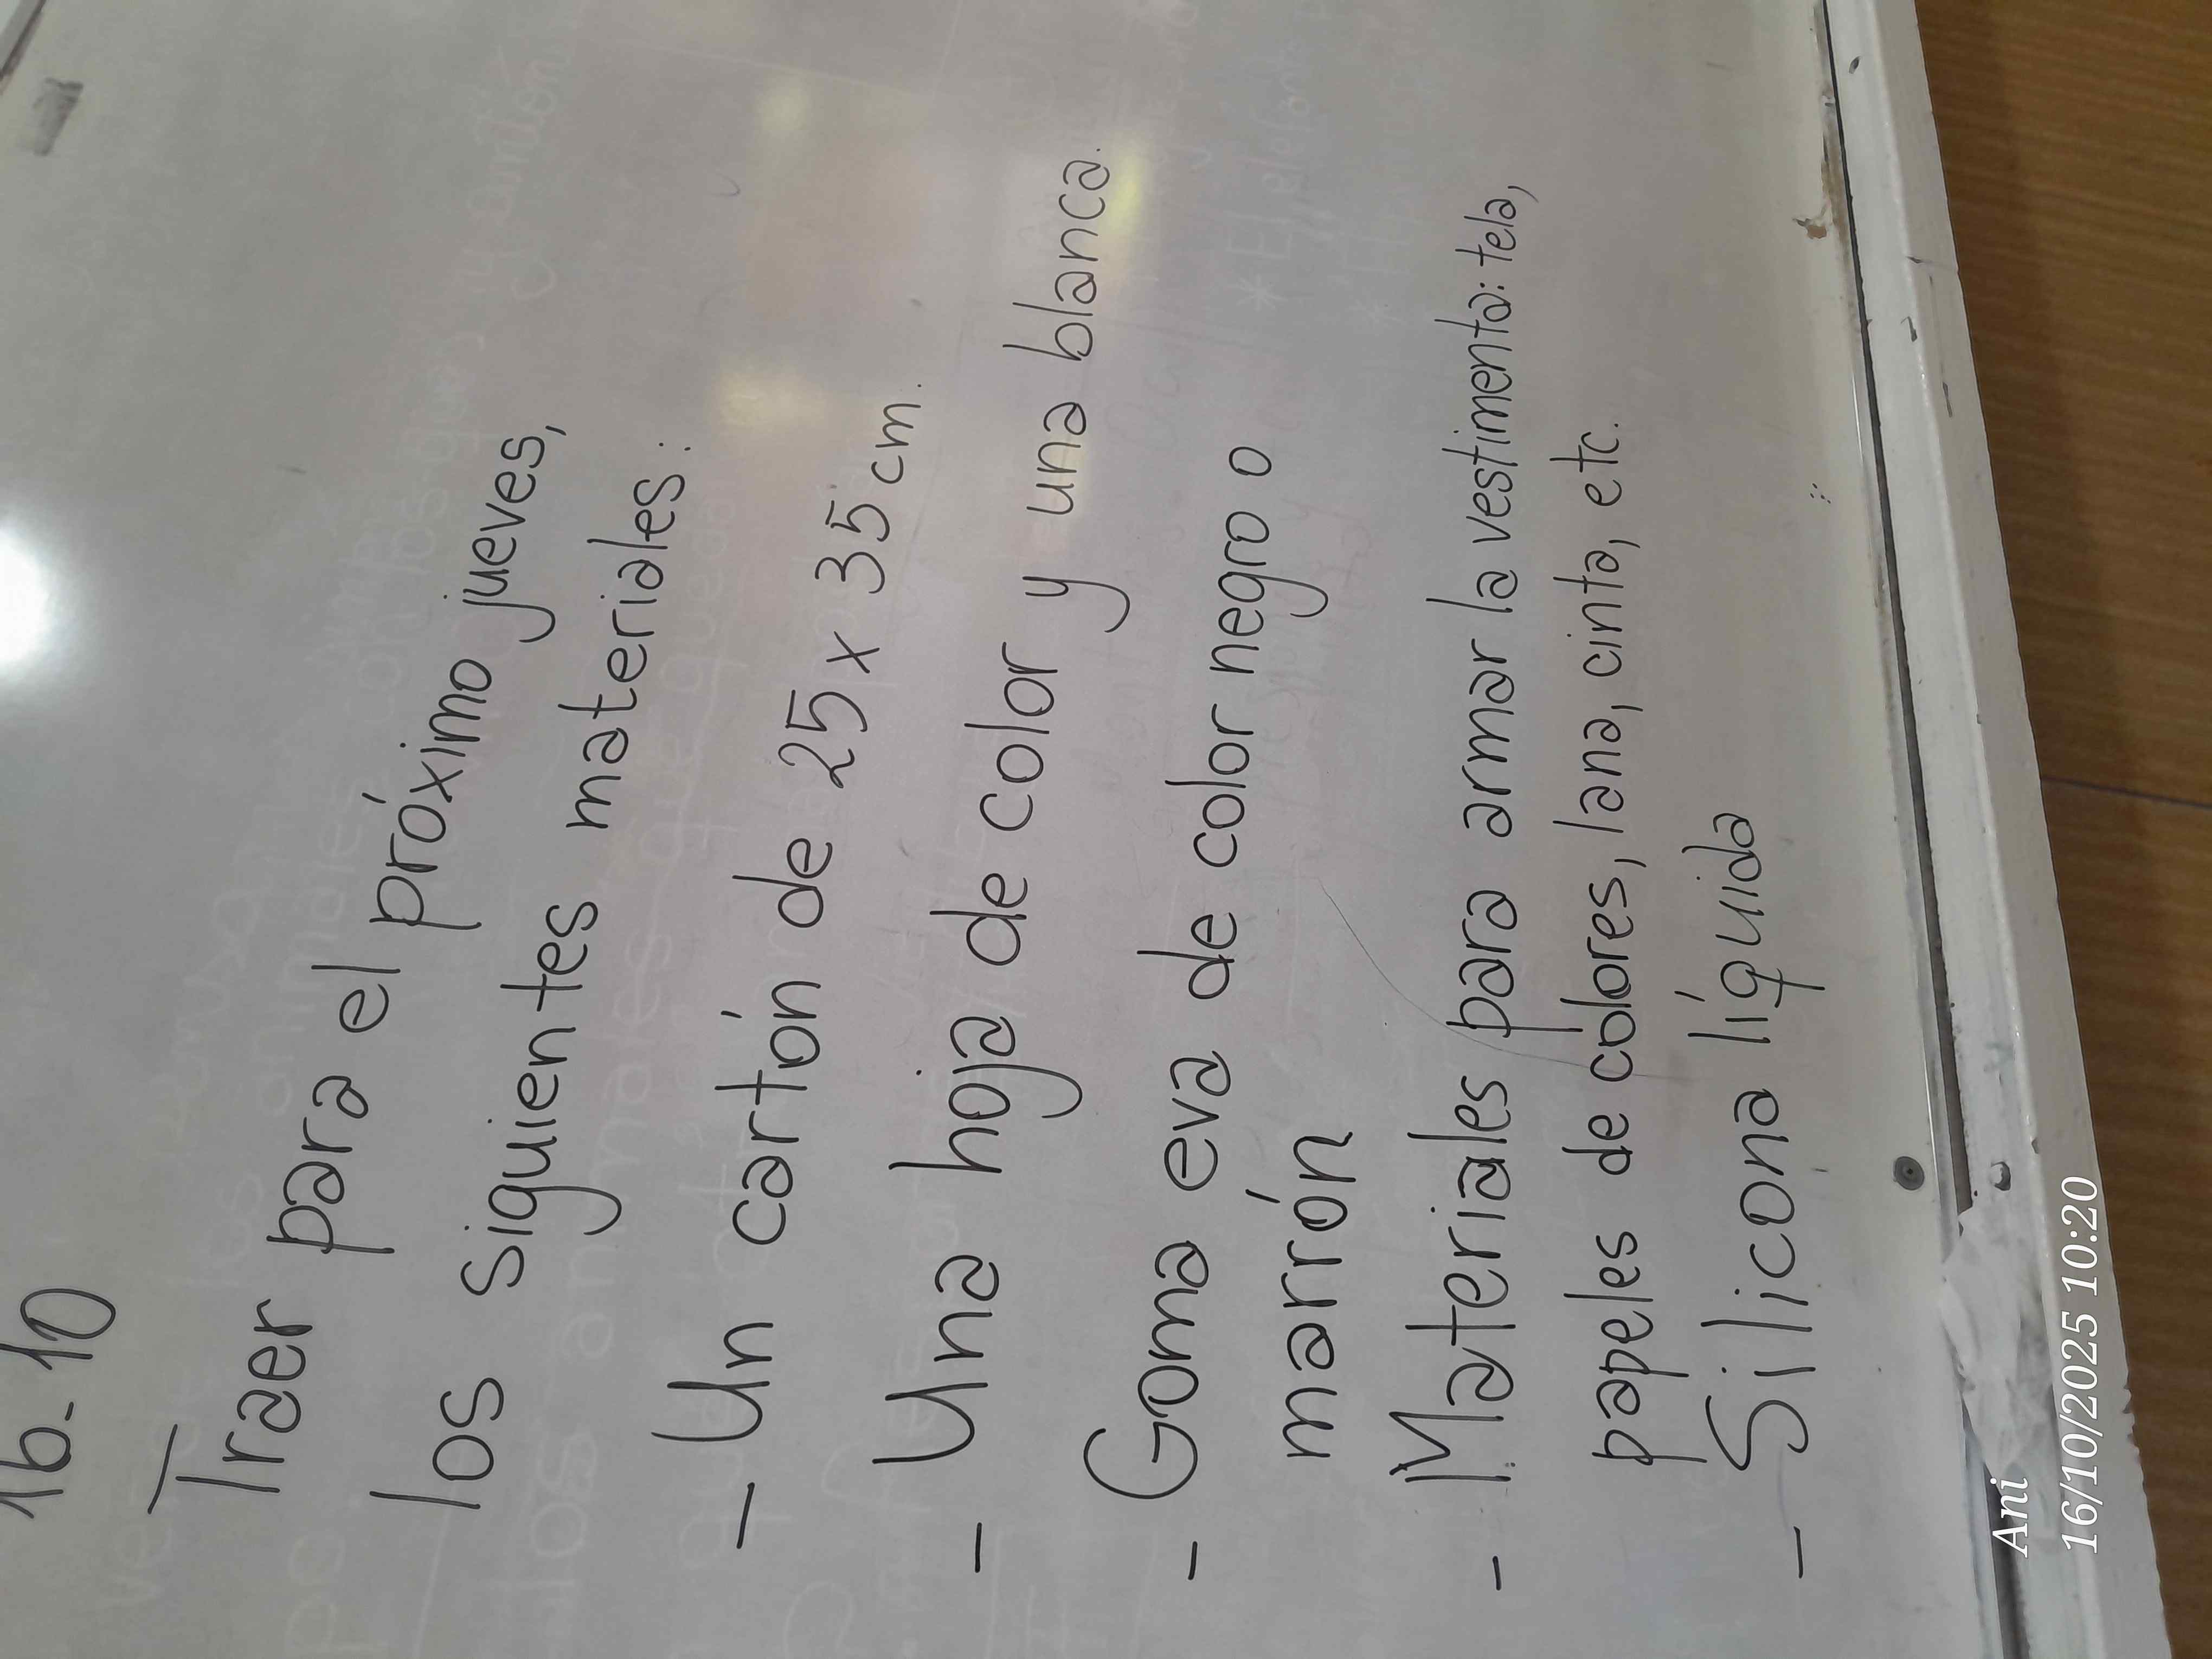 16-10
Traer para el próximo jueves,
los siguientes materiales:
- Un cartón de 25 x 35 cm.
- Una hoja de color y una blanca.
- Goma eva de color negro o
marrón
- Materiales para armar la vestimenta: tela,
papeles de colores, lana, cinta, etc.
- Silicona líquida
Ani
16/10/2025 10:20